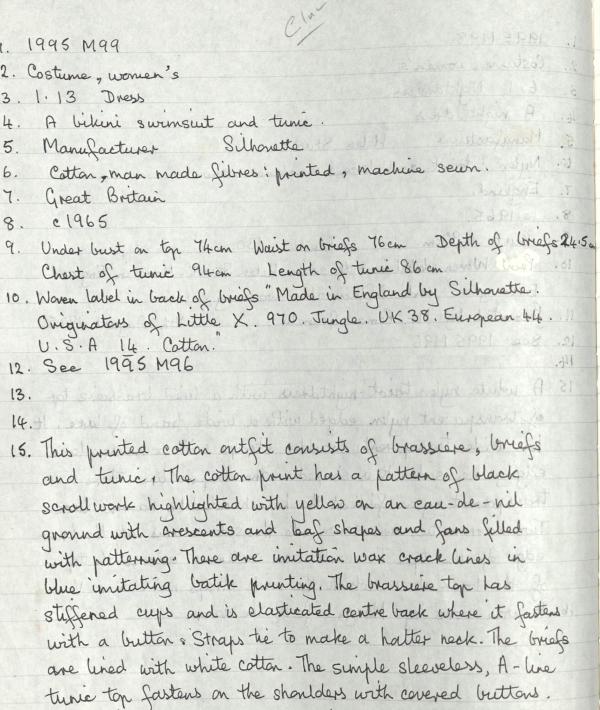 1. 1995 M99
2. Costume, women's
3. 1.13 Dress
4. A bikini swimsuit and tunic.
5. Manufacturer Silhouette
6. Cotton, man made fibres: printed, machine sewn.
7. Great Britain
8. c1965
9. Under bust on top 74cm Waist on briefs 76cm Depth of briefs 24.5cm
Chest of tunic 94cm Length of tunic 86cm
10. Woven label in back of briefs "Made in England by Silhouette.
Originators of Little X. 970. Jungle. UK 38. European 44.
U.S.A 14. Cotton."
12. See 1995 M96
13.
14.
15. This printed cotton outfit consists of brassière, briefs
and tunic. The cotton print has a pattern of black
scrollwork highlighted with yellow on an eau-de-nil
ground with crescents and leaf shapes and fans filled
with patterning. There are imitation wax crack lines in
blue imitating batik printing. The brassière top has
stiffened cups and is elasticated centre back where it fastens
with a button. Straps tie to make a halter neck. The briefs
are lined with white cotton. The simple sleeveless, A-line
tunic top fastens on the shoulders with covered buttons.